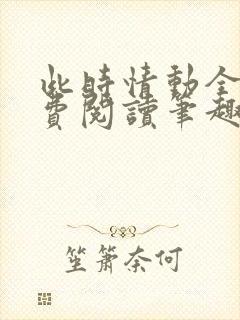 此时情動全
費閱讀筆趣
笙簫奈何